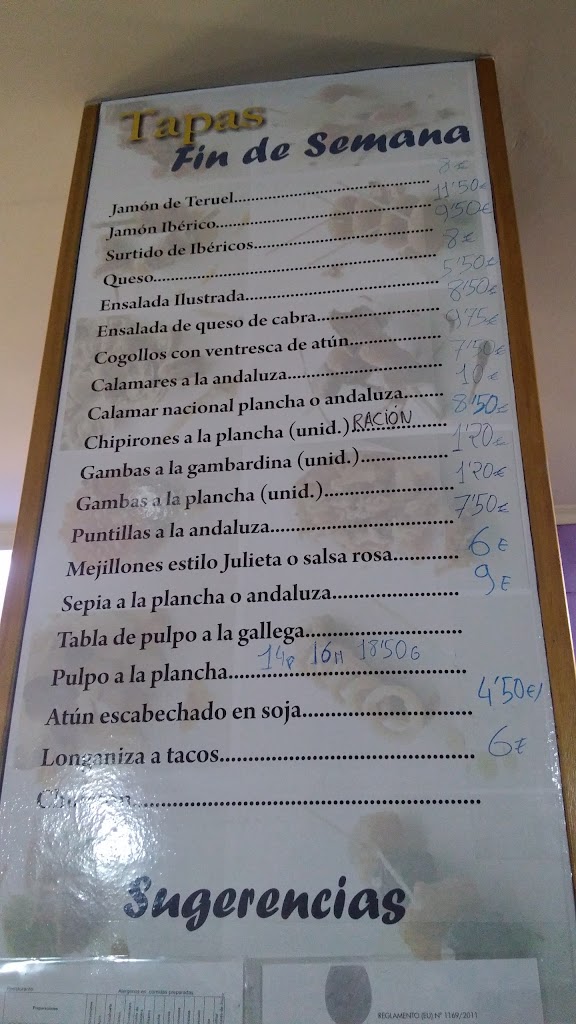 Tapas
Fin de Semana
Jamón de Teruel.......... 8€
Jamón Ibérico.......... 11'50€
Surtido de Ibéricos.......... 9'50€
Queso.......... 8€
Ensalada Ilustrada.......... 5'50€
Ensalada de queso de cabra.......... 8'50€
Cogollos con ventresca de atún.......... 9'75€
Calamares a la andaluza.......... 7'50€
Calamar nacional plancha o andaluza.......... 10€
Chipirones a la plancha (unid.) RACIÓN 8'50€
Gambas a la gambardina (unid.).......... 1'20€
Gambas a la plancha (unid.).......... 1'20€
Puntillas a la andaluza.......... 7'50€
Mejillones estilo Julieta o salsa rosa.......... 6€
Sepia a la plancha o andaluza.......... 9€
Tabla de pulpo a la gallega..........
Pulpo a la plancha.......... 14P 16M 18'50G
Atún escabechado en soja.......... 4'50€/
Longaniza a tacos.......... 6€
Sugerencias
REGLAMENTO (EU) Nº 1169/2011